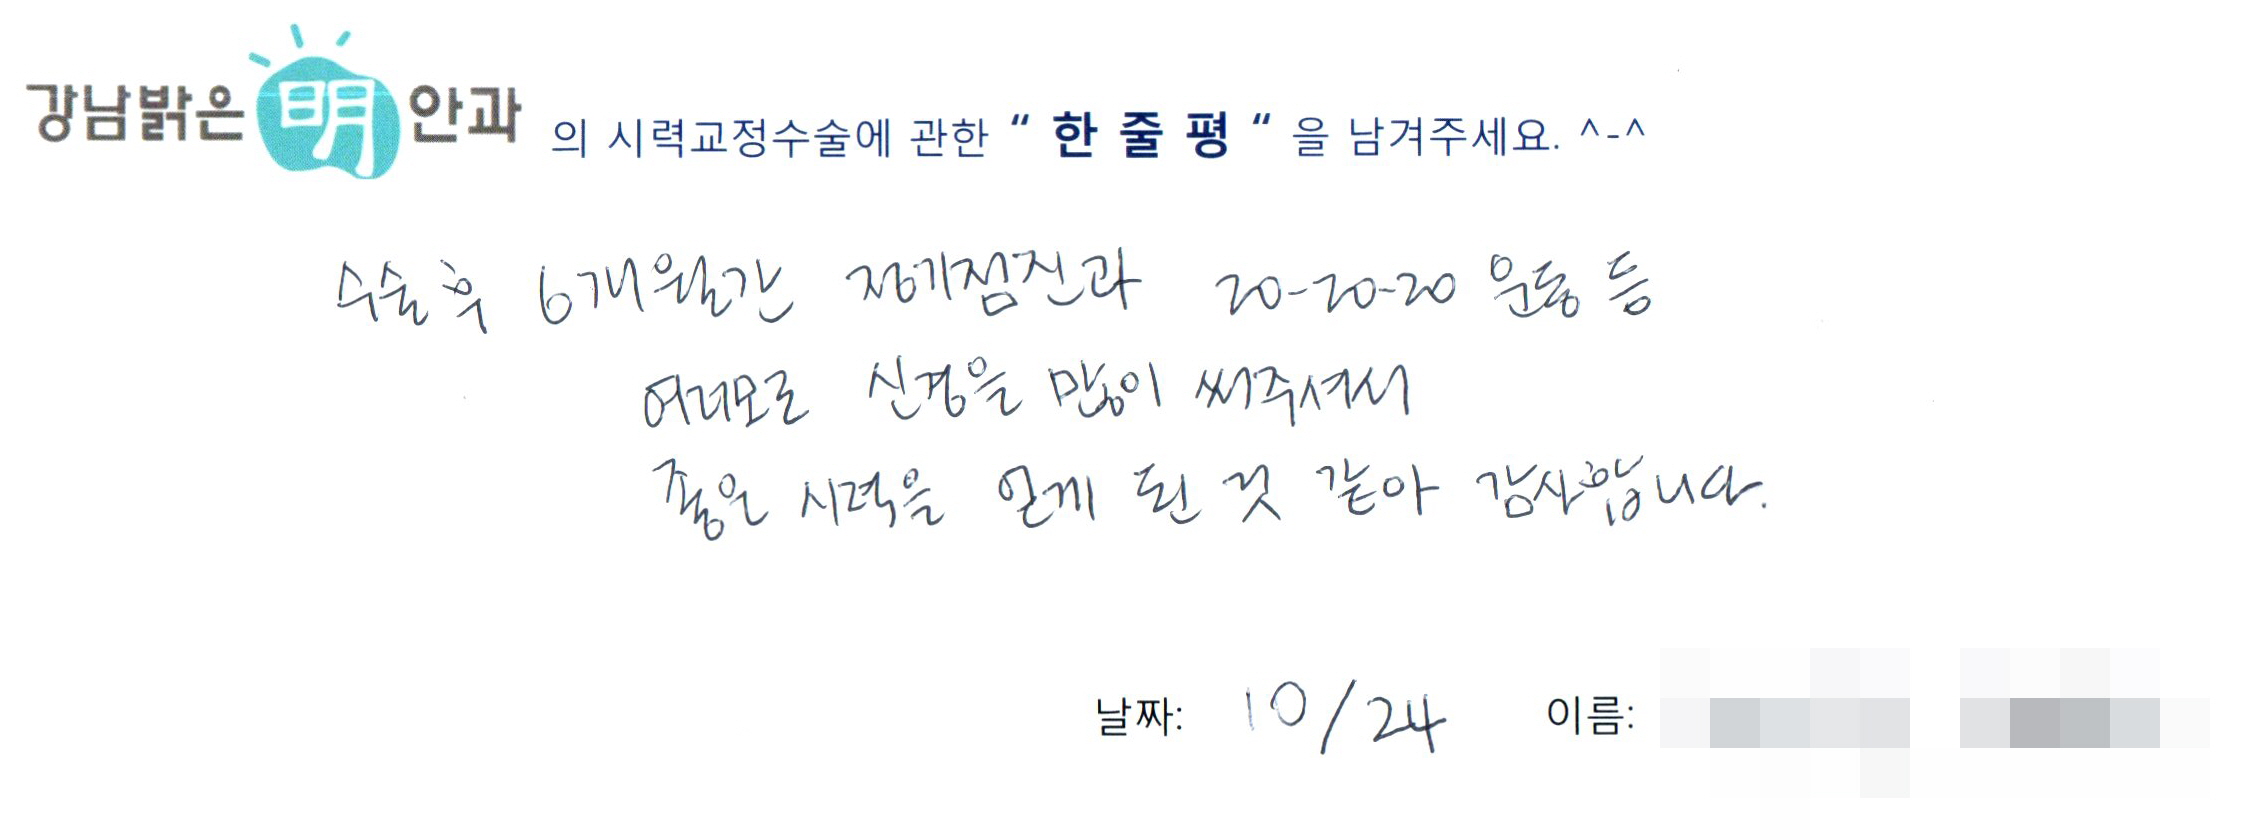 강남밝은明안과 의 시력교정수술에 관한 “ 한 줄 평 “ 을 남겨주세요. ^-^
수술후 6개월간 정기점진과 20-20-20 운동 등
여러모로 신경을 많이 써주셔서
좋은 시력을 얻게 된 것 같아 감사합니다.
날짜: 10/24 이름: